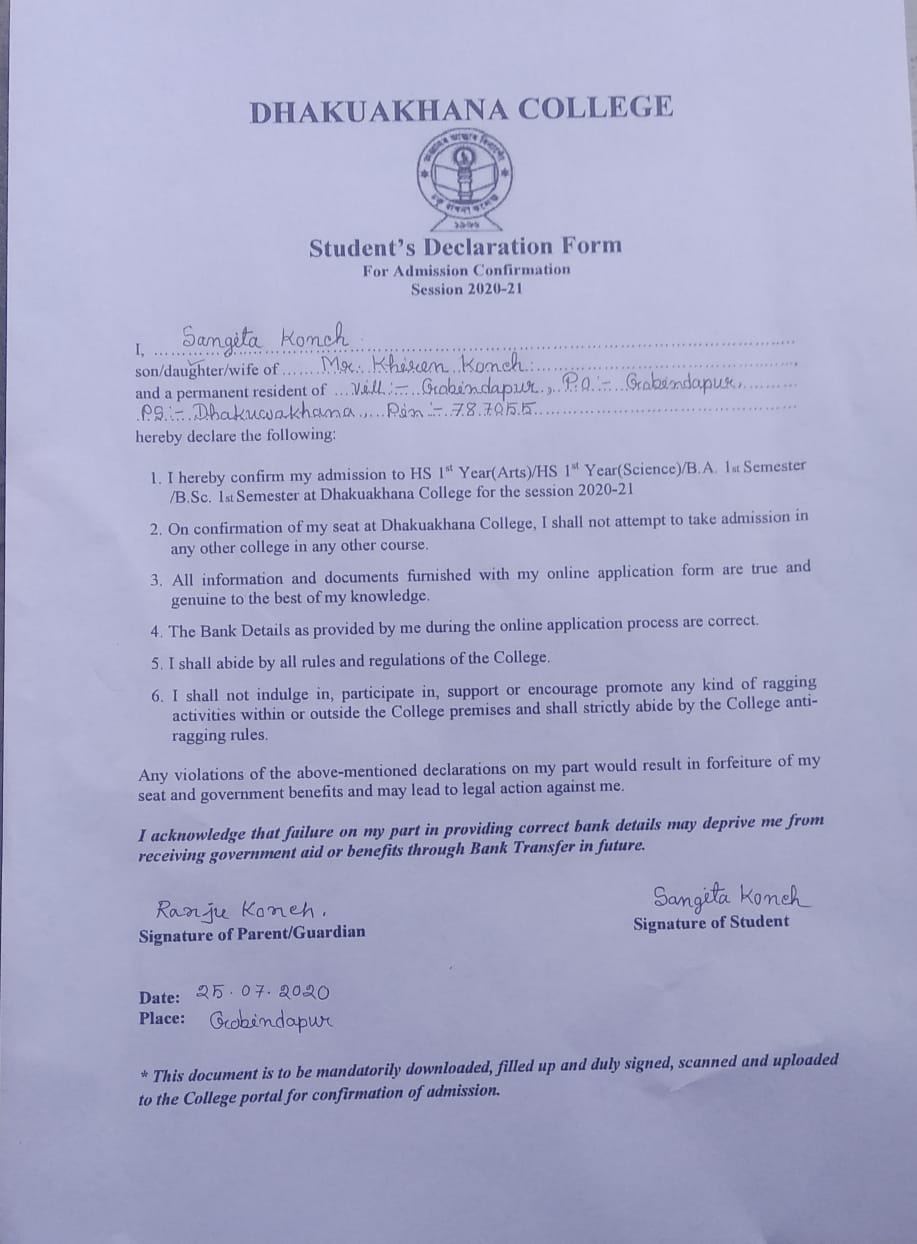 DHAKUAKHANA COLLEGE
১৯৬৬
Student's Declaration Form
For Admission Confirmation
Session 2020-21
I, Sangita Konch
son/daughter/wife of Mr. Khiren Konch
and a permanent resident of Vill:- Gobindapur, P.O:- Gobindapur,
P.S:- Dhakuwakhana, Pin:- 787055
hereby declare the following:
1. I hereby confirm my admission to HS 1st Year(Arts)/HS 1st Year(Science)/B.A. 1st Semester
/B.Sc. 1st Semester at Dhakuakhana College for the session 2020-21
2. On confirmation of my seat at Dhakuakhana College, I shall not attempt to take admission in
any other college in any other course.
3. All information and documents furnished with my online application form are true and
genuine to the best of my knowledge.
4. The Bank Details as provided by me during the online application process are correct.
5. I shall abide by all rules and regulations of the College.
6. I shall not indulge in, participate in, support or encourage promote any kind of ragging
activities within or outside the College premises and shall strictly abide by the College anti-
ragging rules.
Any violations of the above-mentioned declarations on my part would result in forfeiture of my
seat and government benefits and may lead to legal action against me.
I acknowledge that failure on my part in providing correct bank details may deprive me from
receiving government aid or benefits through Bank Transfer in future.
Ranju Konch. Sangita Konch
Signature of Parent/Guardian Signature of Student
Date: 25.07.2020
Place: Gobindapur
* This document is to be mandatorily downloaded, filled up and duly signed, scanned and uploaded
to the College portal for confirmation of admission.